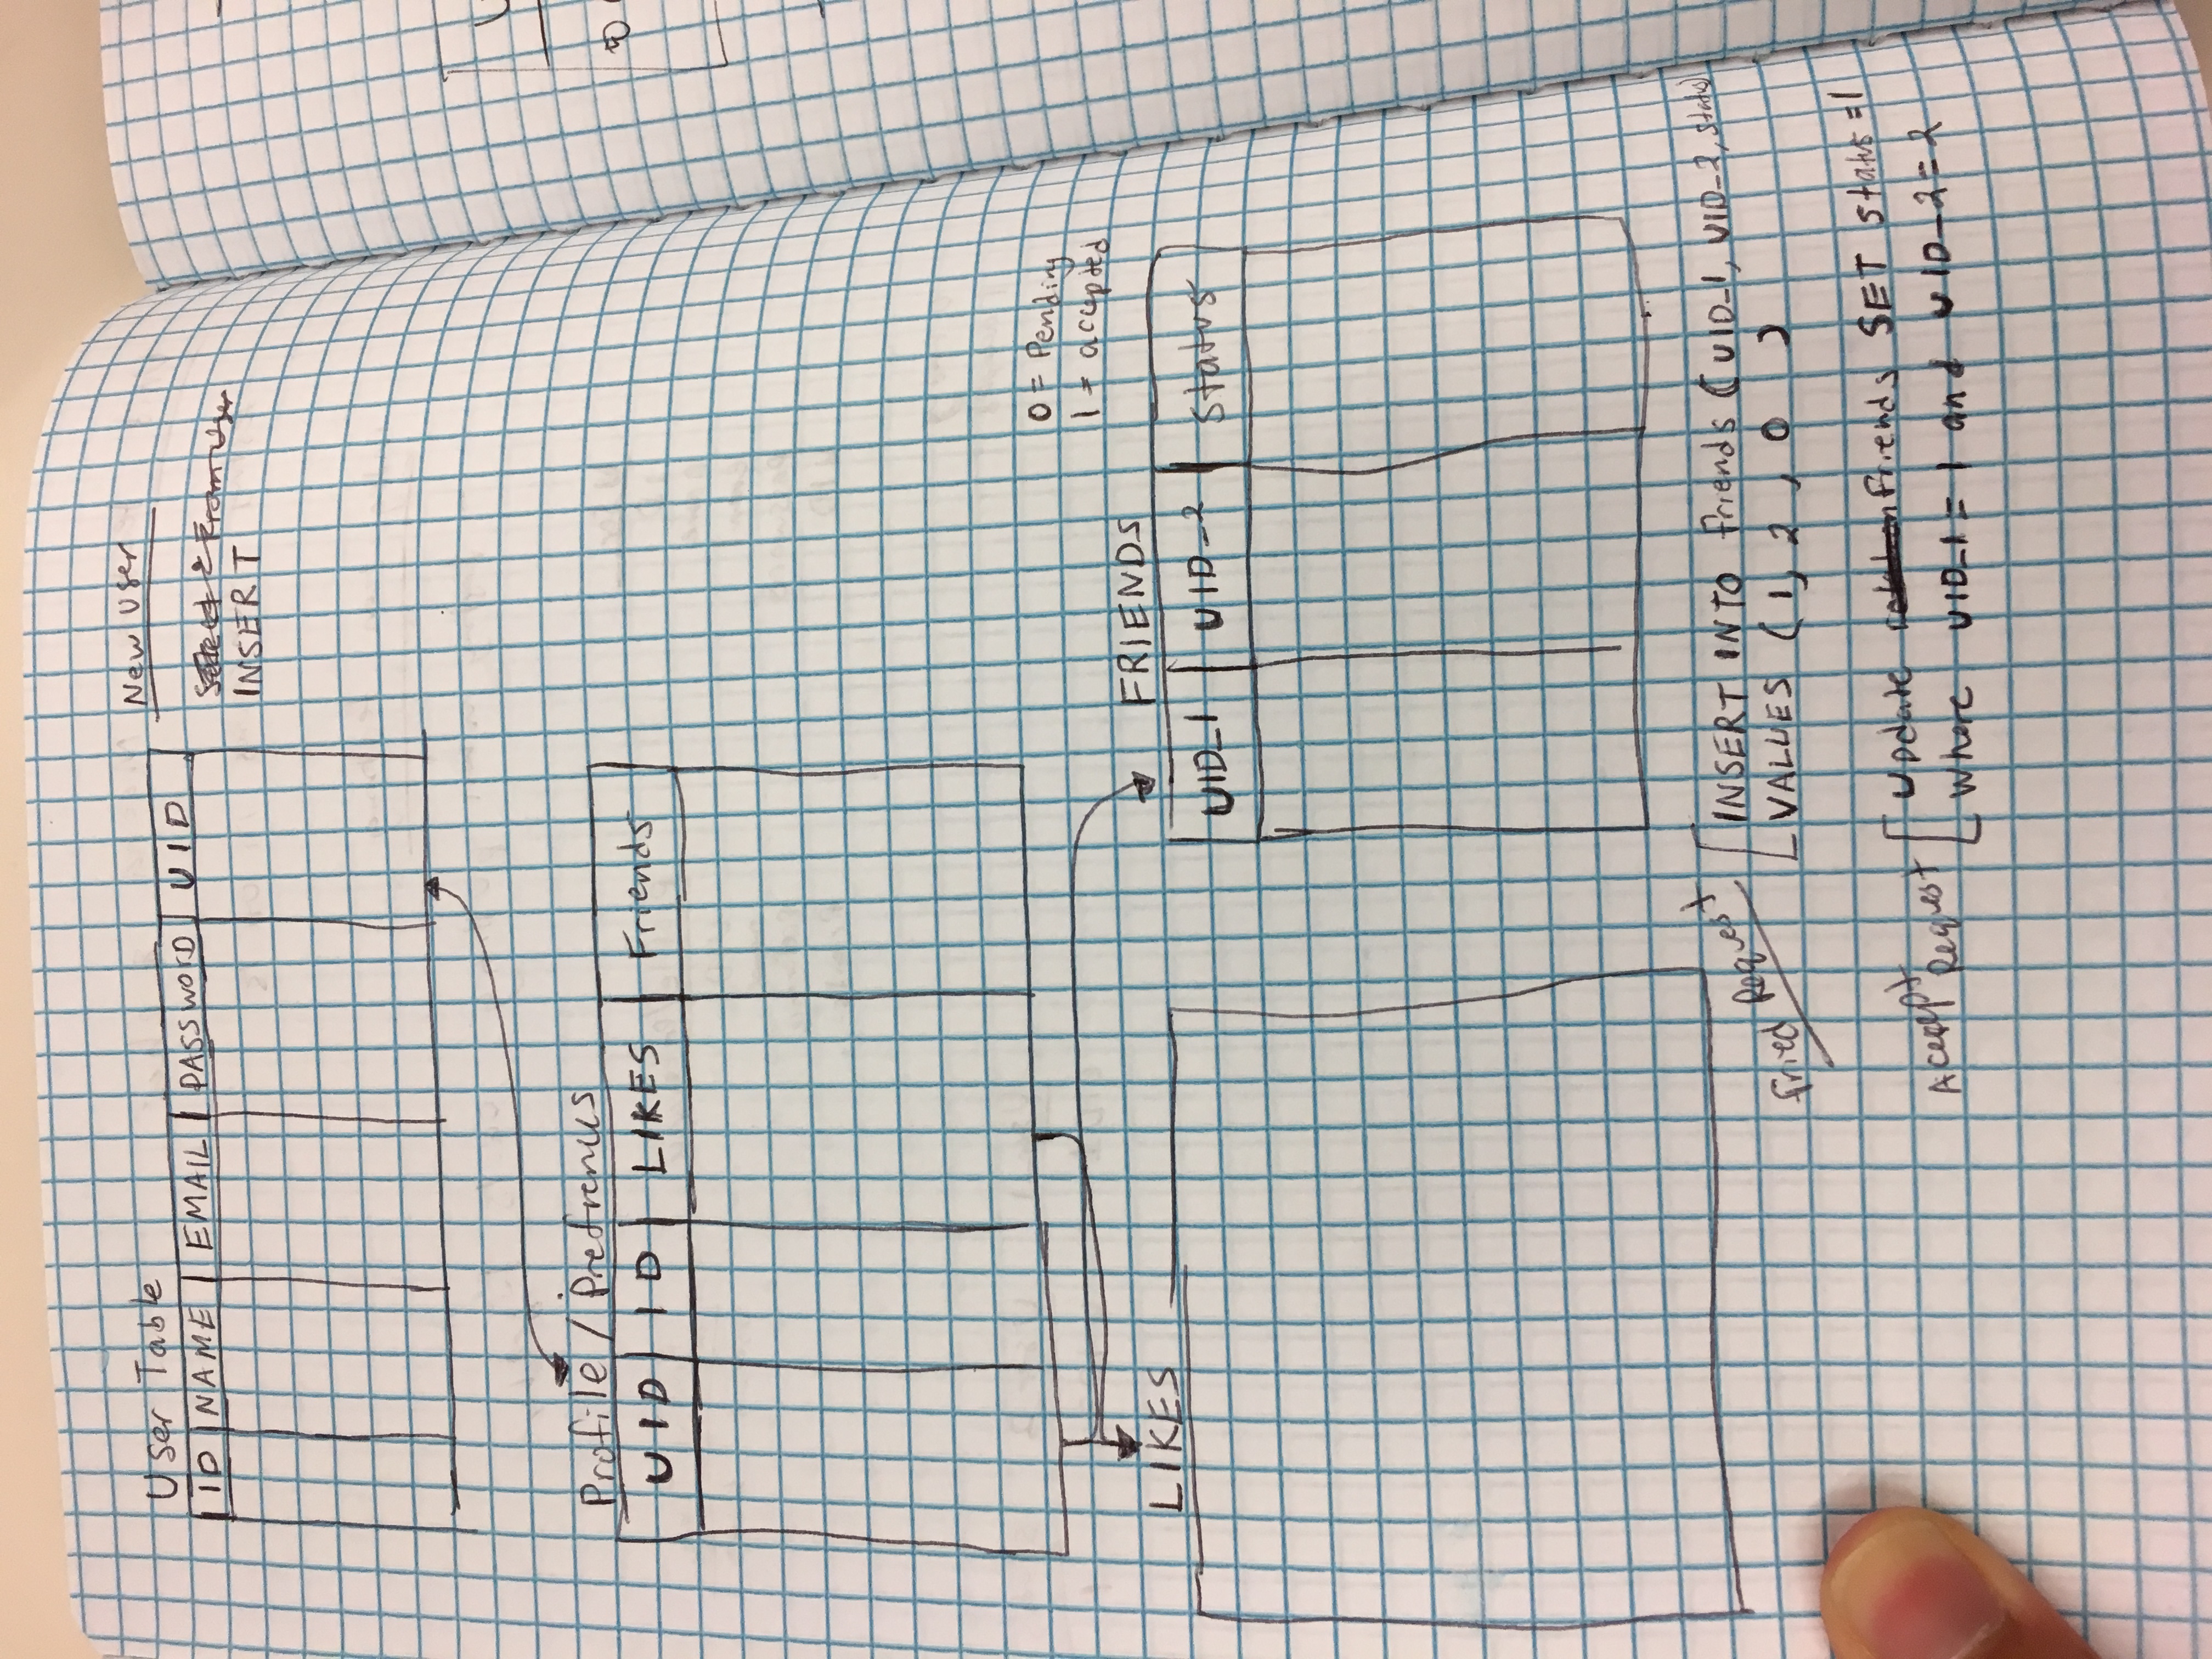 User Table
ID NAME EMAIL PASSWORD UID
New User
INSERT
Profile / Prefrences
UID ID LIKES Friends
0 = Pending
1 = accepted
LIKES
FRIENDS
UID_1 UID_2 Status
Fried Request
INSERT INTO friends (UID_1, UID_2, status)
VALUES (1, 2, 0 )
Accept Request
Update friends SET status = 1
Where UID_1 = 1 and UID_2 = 2